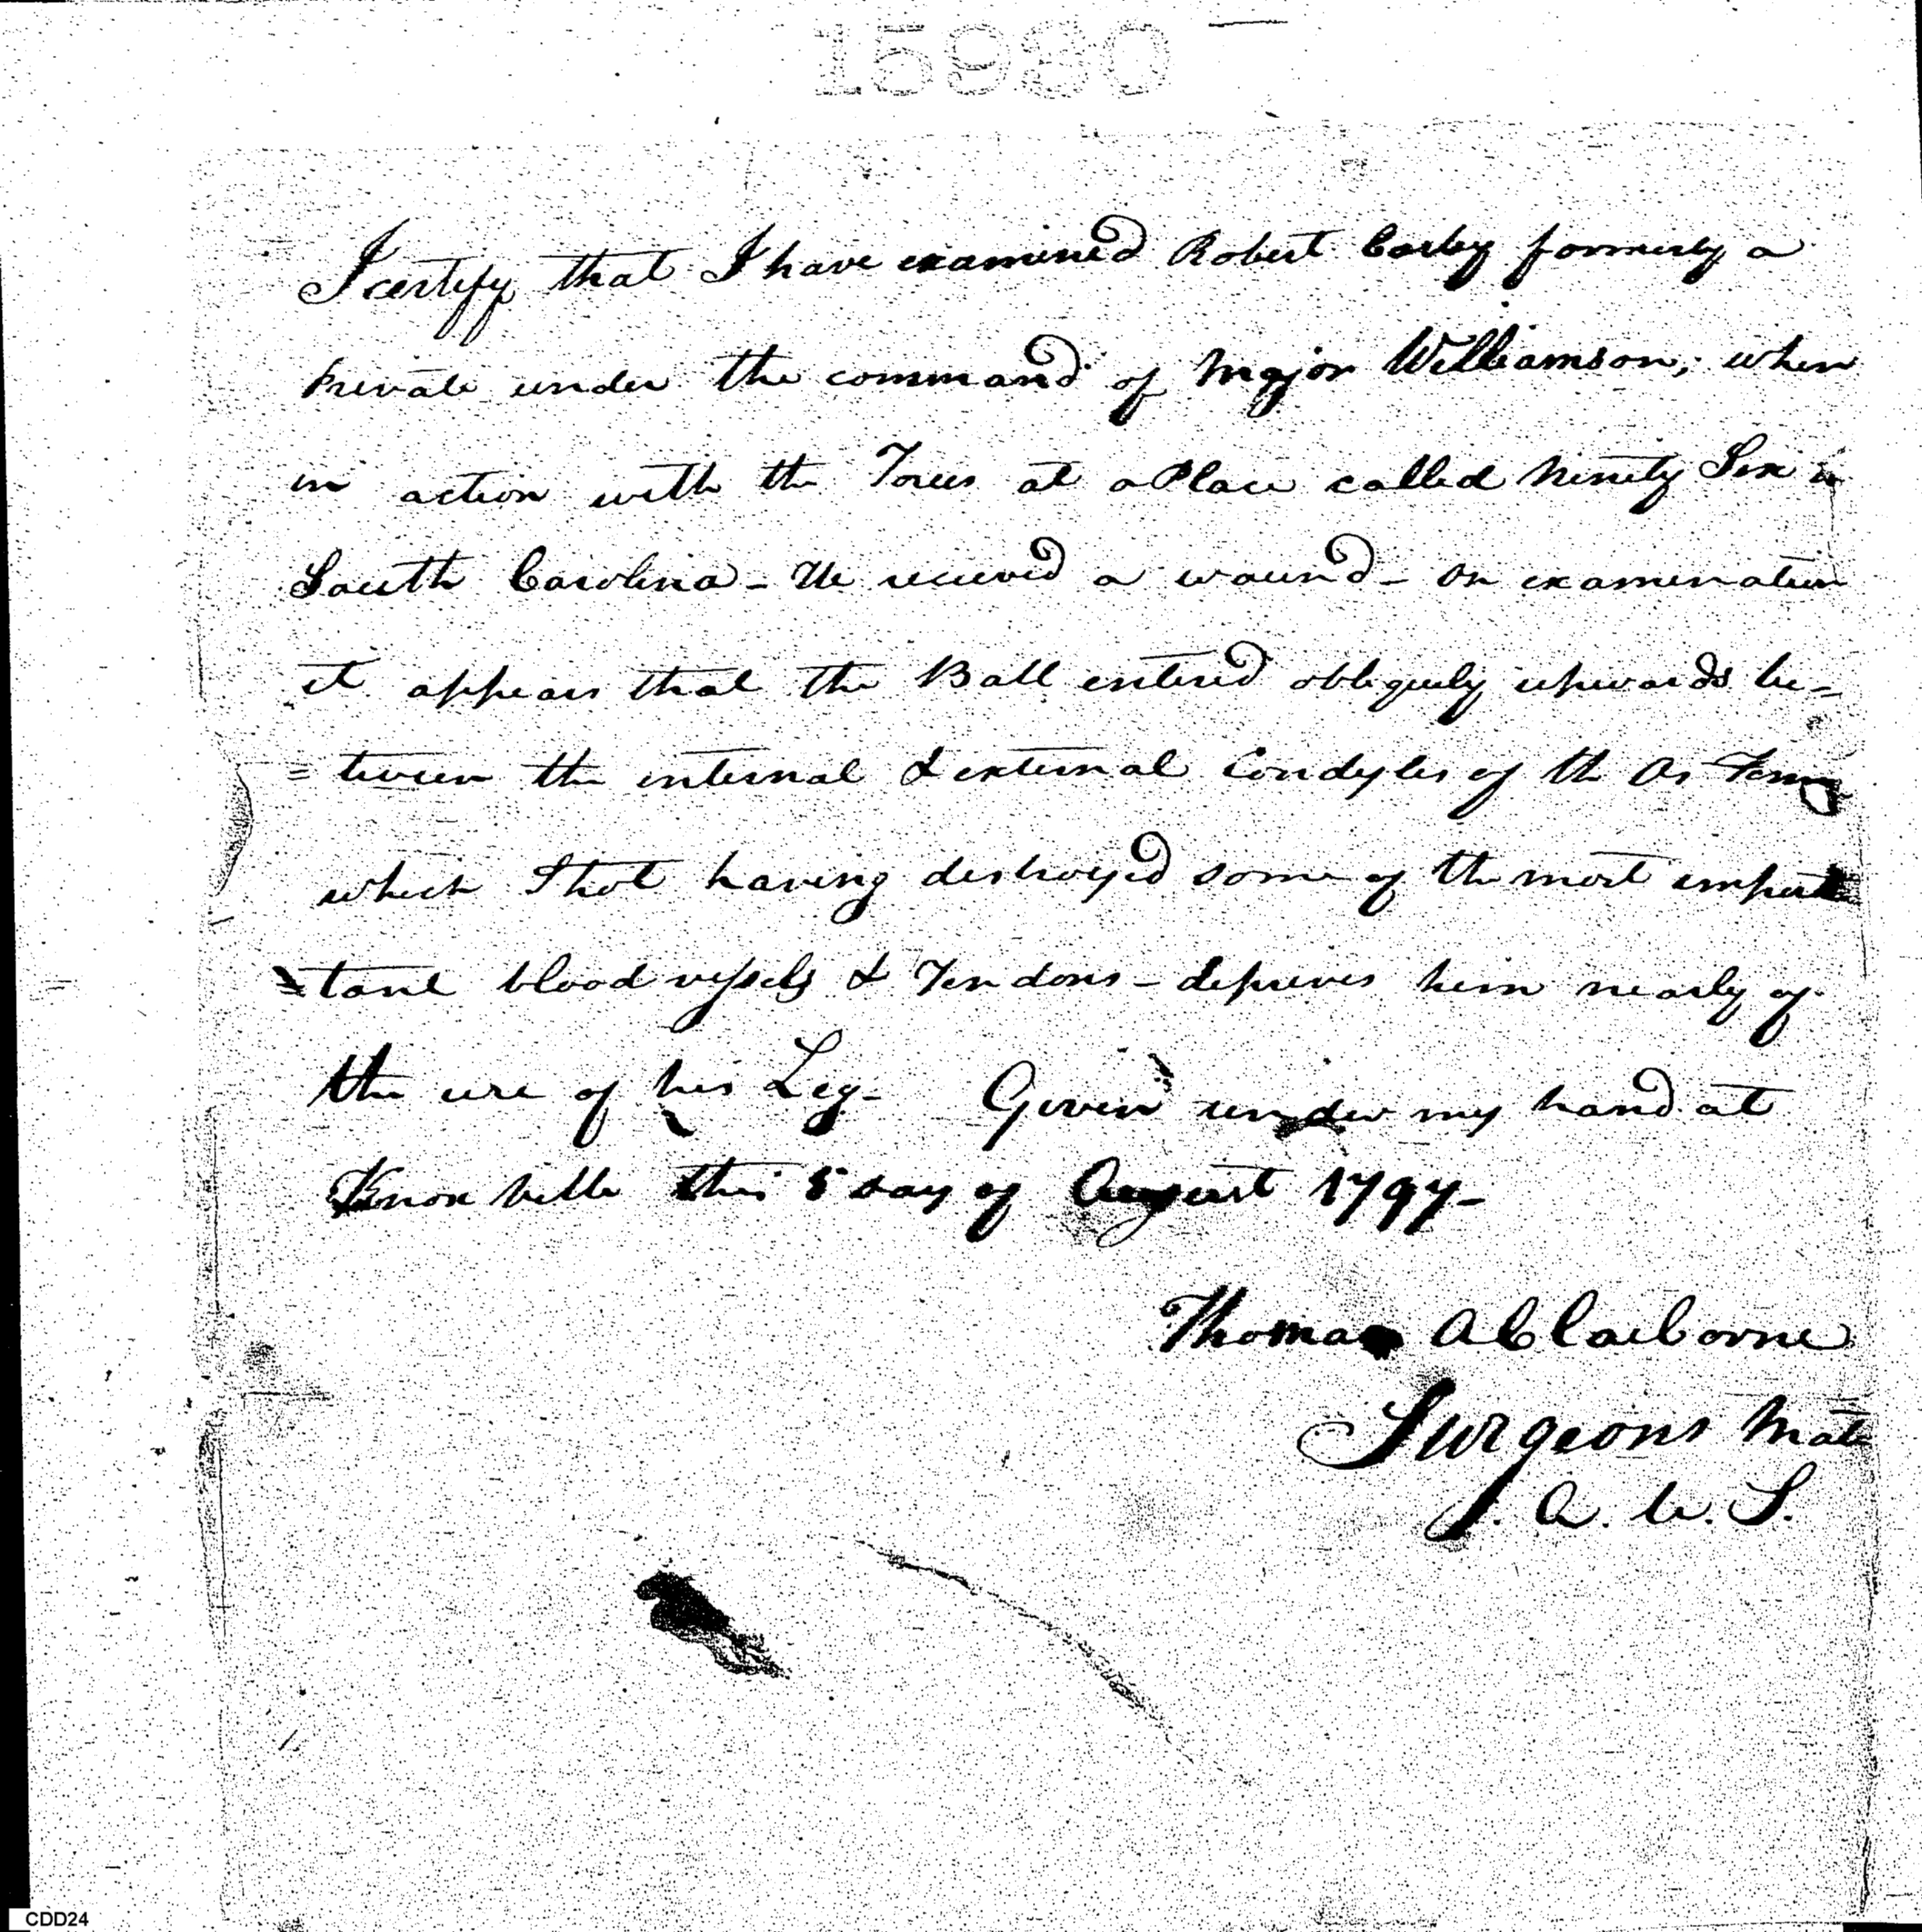 15980
I certify that I have examined Robert Carley formerly a
private under the command of Major Williamson; when
in action with the Tories at a Place called Ninety Six in
South Carolina - He recieved a wound - On examination
it appears that the Ball entered obliquely upwards be-
=tween the internal & external Condyles of the Os
which Shot having destroyed some of the most
tant blood vessels & Tendons - deprives him nearly of
the use of his Leg - Given under my hand at
Knox ville this 5 day of August 1797 -
Thomas A Claiborne
Surgeons Mate
A. U. S.
CDD24